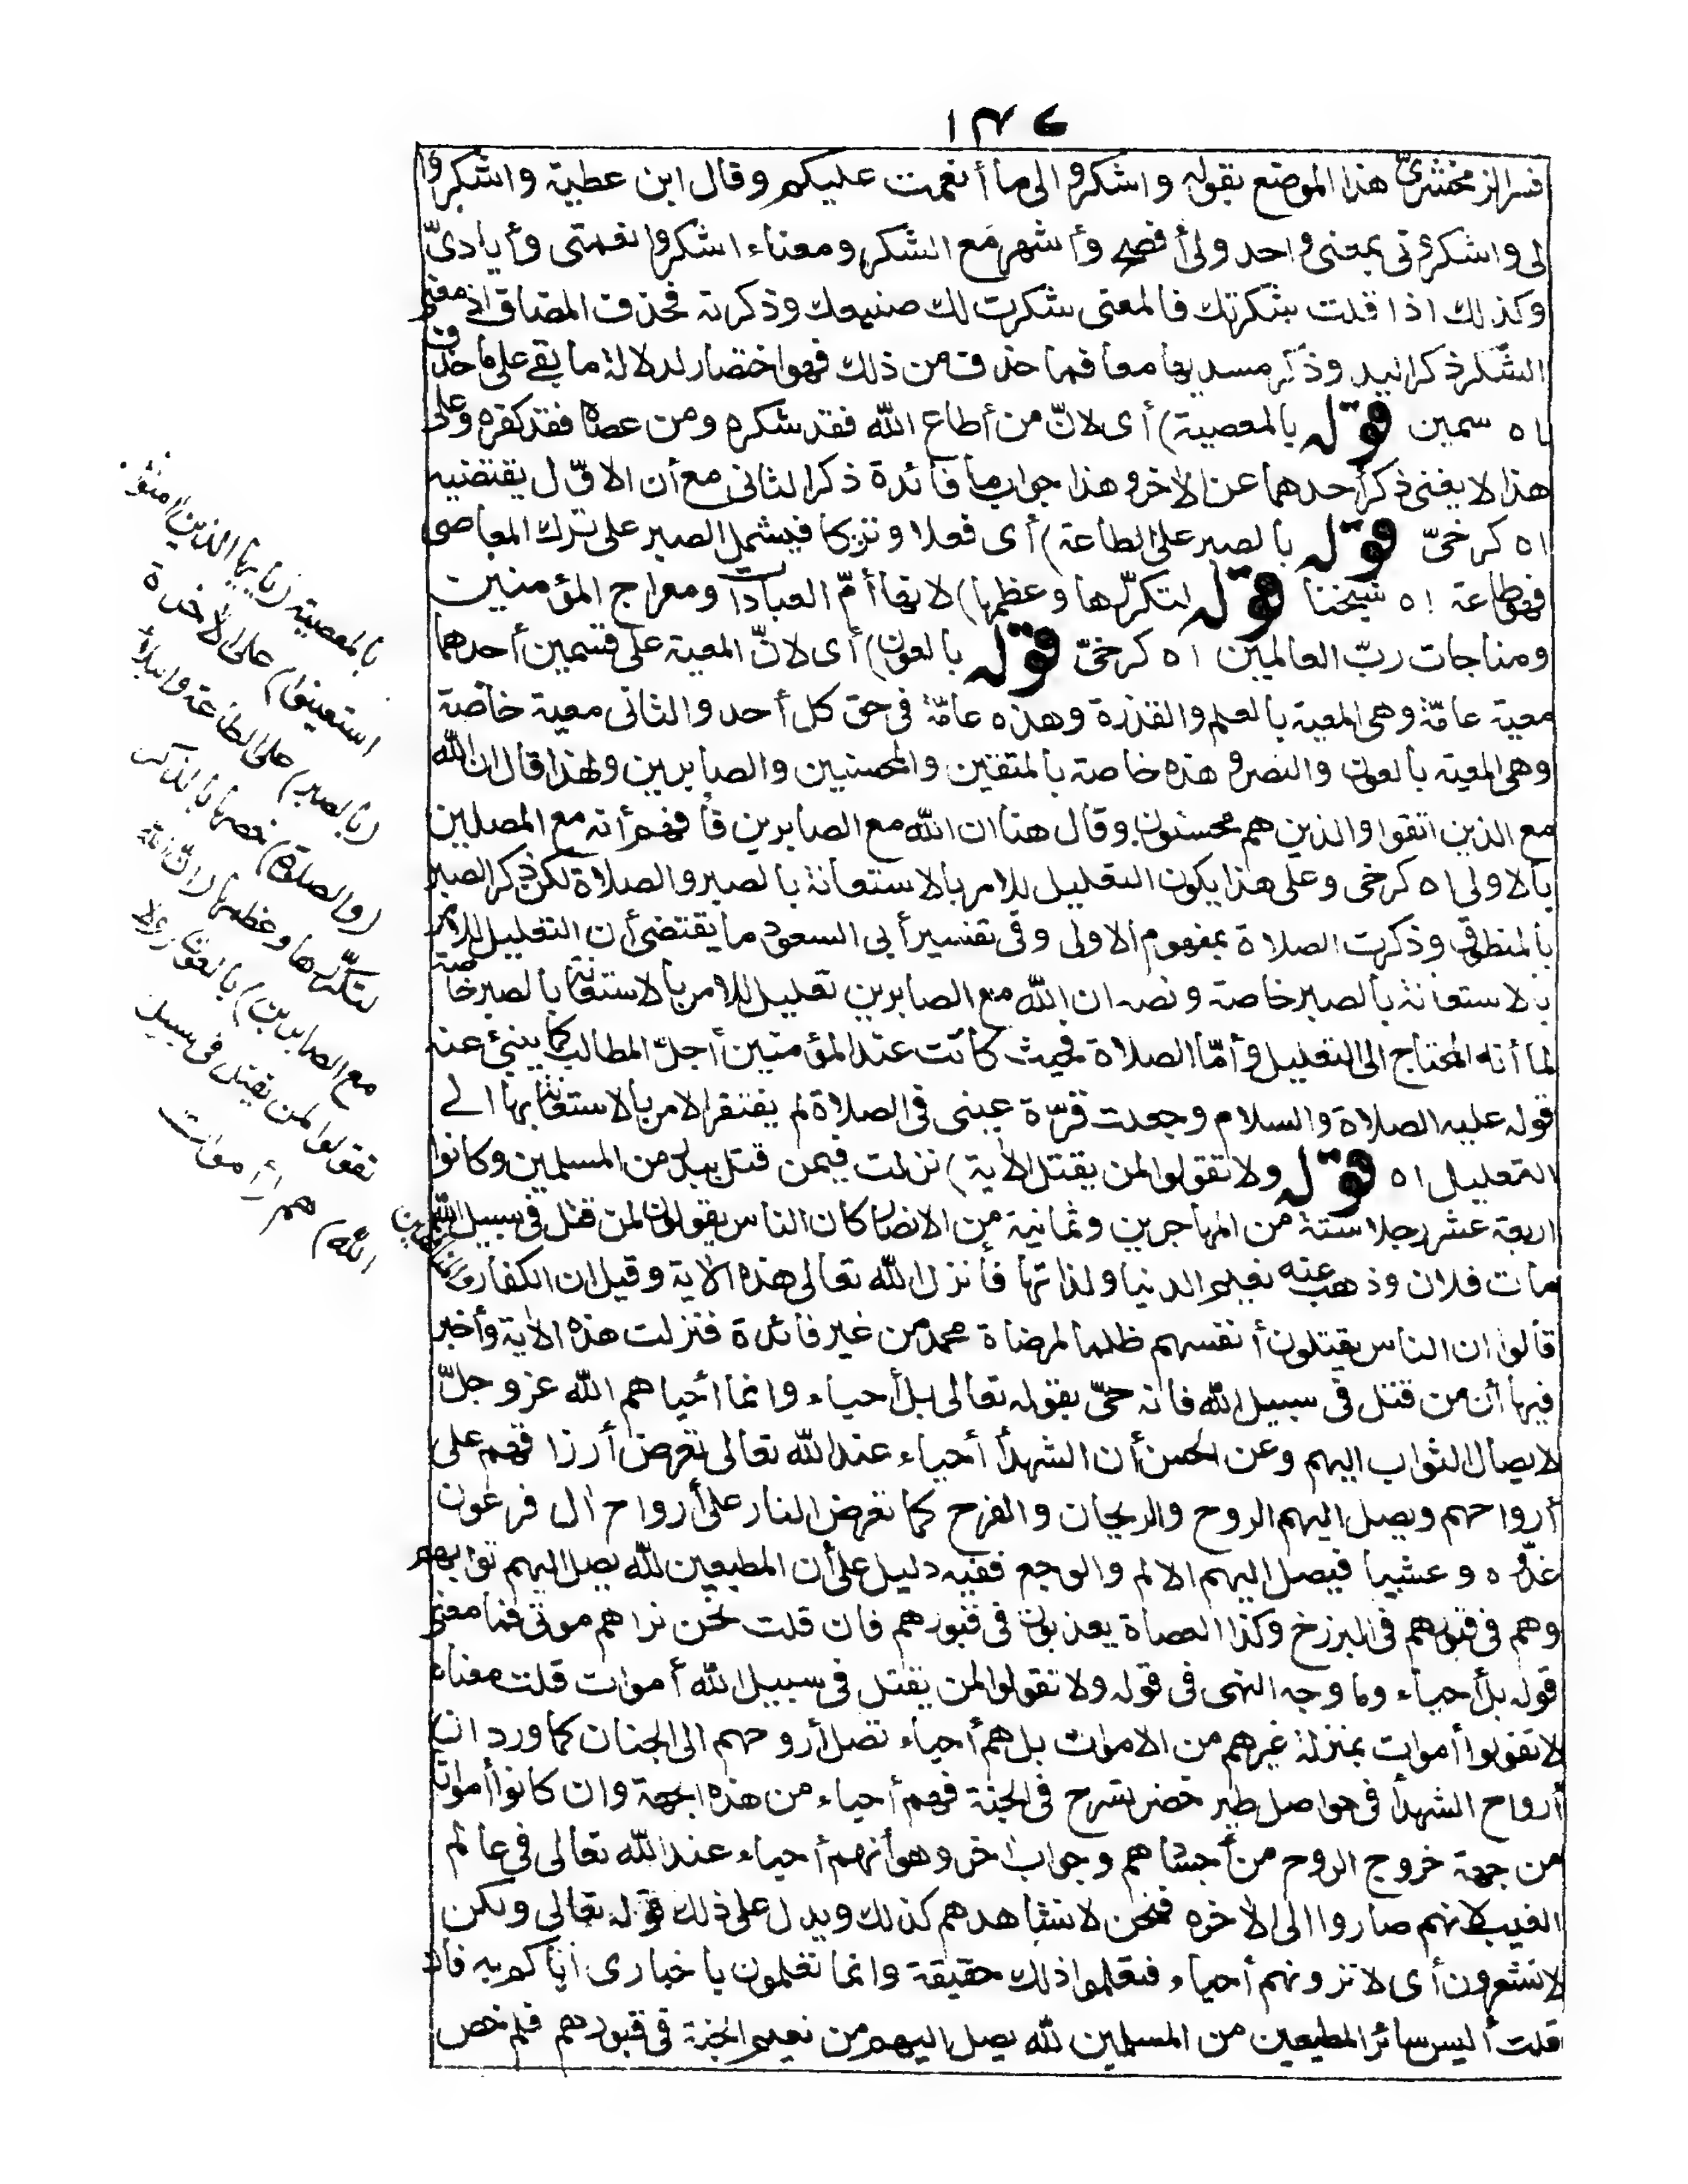 ١٣٤
فسر الزمخشريّ هذا الموضع بقوله واشكروا لى ما أنعمت عليكم وقال ابن عطية واشكروا
لى واشكروني بمعنى واحد ولى أفصح وأشهر مع الشكر ومعناه اشكروا نعمتى وأيادىّ
وكذلك اذا قلت شكرتك فالمعنى شكرت لك صنيعك وذكرته فحذف المضاف اذ معنى
الشكر ذكر اليد وذكر مسديها معا فما حذف من ذلك فهو اختصار لدلالة ما بقى على ما حذف
اه سمين قوله بالمعصية) أى لانّ من أطاع الله فقد شكره ومن عصاه فقد كفره وعلى
هذا لا يغنى ذكر أحدهما عن الاخر وهذا جواب ما فائدة ذكر الثانى مع أن الاوّل يقتضيه
اه كرخىّ قوله بالصبر على الطاعة) أى فعلا وتركا فيشمل الصبر على ترك المعاصى
فهو طاعة اه شيخنا قوله لتكرّرها وعظمها) لانها أمّ العبادات ومعراج المؤمنين
ومناجات ربّ العالمين اه كرخىّ قوله بالعون) أى لانّ المعية على قسمين أحدهما
معية عامّة وهى المعية بالعلم والقدرة وهذه عامّة فى حق كل أحد والثانى معية خاصة
وهى المعية بالعون والنصر وهذه خاصة بالمتقين والمحسنين والصابرين ولهذا قال ان الله
مع الذين اتقوا والذين هم محسنون وقال هنا ان الله مع الصابرين فأفهم أنه مع المصلين
بالاولى اه كرخى وعلى هذا يكون التعليل للامر بالاستعانة بالصبر والصلاة لكن ذكر الصبر
بالمنطوق وذكرت الصلاة بمفهوم الاولى وفى تفسير أبى السعود ما يقتضى أن التعليل للامر
بالاستعانة بالصبر خاصة ونصه ان الله مع الصابرين تعليل للامر بالاستعانة بالصبر خاصة
لما أنه المحتاج الى التعليل وأمّا الصلاة فحيث كانت عند المؤمنين أجلّ المطالب كما ينبئ عنه
قوله عليه الصلاة والسلام وجعلت قرّة عينى فى الصلاة لم يفتقر الامر بالاستعانة بها الى
التعليل اه قوله ولا تقولوا لمن يقتل الأية) نزلت فيمن قتل ببدر من المسلمين وكانوا
اربعة عشر رجلا ستة من المهاجرين وثمانية من الانصار كان الناس يقولون لمن قتل فى سبيل الله
مات فلان وذهب عنه نعيم الدنيا ولذاتها فأنزل الله تعالى هذه الأية وقيل ان الكفار والمنافقين
قالوا ان الناس يقتلون أنفسهم ظلما لمرضاة محمد من غير فائدة فنزلت هذه الأية وأخبر
فيها أن من قتل فى سبيل الله فانه حىّ بقوله تعالى بل أحياء وانما أحياهم الله عز وجلّ
لايصال الثواب اليهم وعن الحسن أن الشهدأ أحياء عند الله تعالى تعرض أرزاقهم على
أرواحهم ويصل اليهم الروح والريحان والفرح كما تعرض النار على أرواح أل فرعون
غدوّه وعشيا فيصل اليهم الالم والوجع ففيه دليل على أن المطيعين لله يصل اليهم ثوابهم
وهم فى قبورهم فى البرزخ وكذا العصاة يعذبون فى قبورهم فان قلت نحن نراهم موتى فما معنى
قوله بل أحياء وما وجه النهى فى قوله ولا تقولوا لمن يقتل فى سبيل الله أموات قلت معناه
لا تقولوا أموات بمنزلة غيرهم من الاموات بل هم أحياء تصل أروحهم الى الجنان كما ورد ان
أرواح الشهدأ فى حواصل طير خضر تسرح فى الجنة فهم أحياء من هذه الجهة وان كانوا أمواتا
من جهة خروج الروح من أجسادهم وجواب أخر وهو أنهم أحياء عند الله تعالى فى عالم
الغيب لانهم صاروا الى الأخره فنحن لا نشاهدهم كذلك ويدل على ذلك قوله تعالى ولكن
لا تشعرون أى لا ترونهم أحياء فتعلموا ذلك حقيقة وانما تعلمون باخبارى اياكم به فان
قلت أليس سائر المطيعين من المسلمين لله يصل اليهم من نعيم الجنة فى قبورهم فلم خص
بالمعصية (يا يها الذين امنوا
استعينوا) على الأخرة
(بالصبر) على الطاعة والبلاء
(والصلاة) خصها بالذكر
لتكرّرها وعظمها (ان الله
مع الصابرين) بالعون (ولا
تقولوا لمن يقتل فى سبيل
الله) هم (أموات